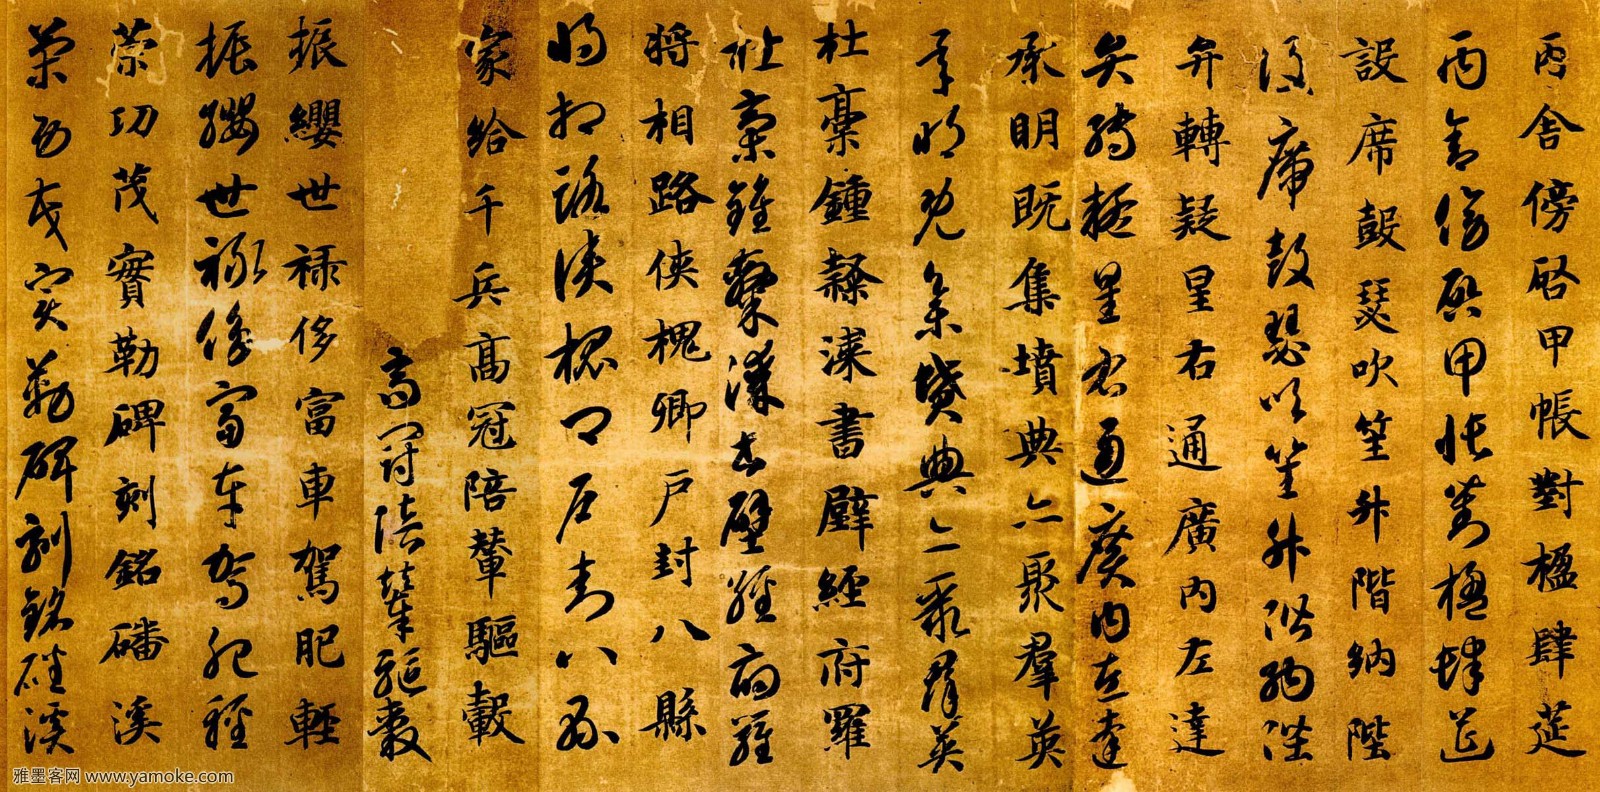 丙舍傍启甲帳對楹肆筵
丙舍傍启甲帳對楹肆筵
設席鼓瑟吹笙升階納陛
設席鼓瑟吹笙升階納陛
弁轉疑星右通廣內左達
弁轉疑星右通廣內左達
承明既集墳典亦聚羣英
承明既集墳典亦聚羣英
杜稾鍾隸漆書壁經府羅
杜稾鍾隸漆書壁經府羅
將相路俠槐卿戶封八縣
將相路俠槐卿戶封八縣
家給千兵高冠陪輦驅轂
高冠陪輦驅轂
振纓世祿侈富車駕肥輕
振纓世祿侈富車駕肥輕
策功茂實勒碑刻銘磻溪
策功茂實勒碑刻銘磻溪
雅墨客网 www.yamoke.com